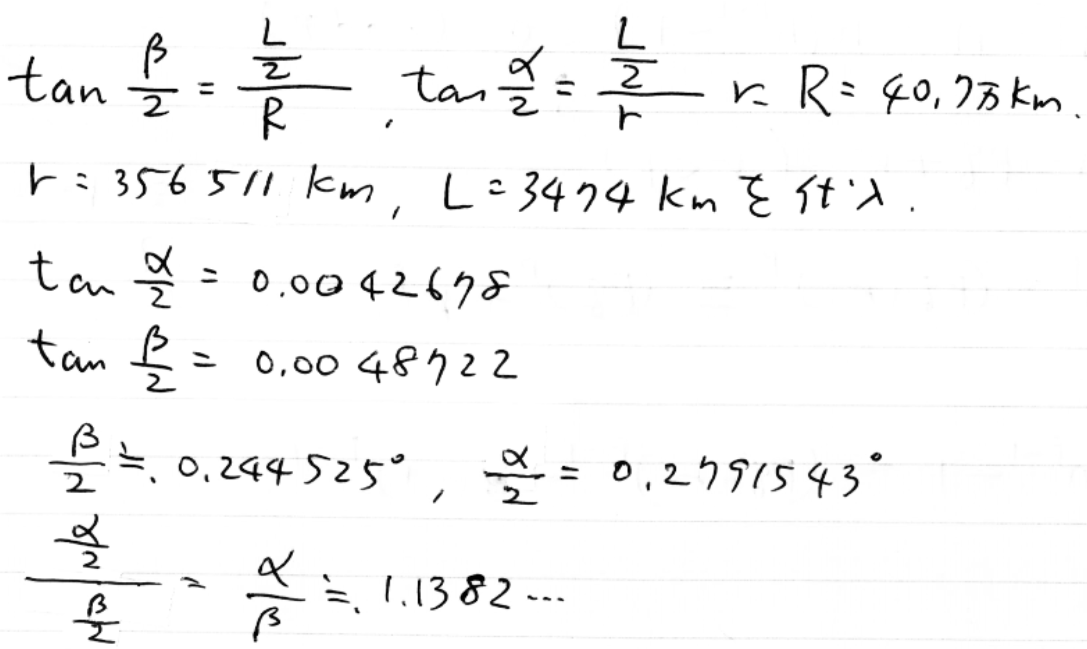 tan β/2 = (L/2)/R , tan α/2 = (L/2)/r に R = 40.7万km.
r = 356511 km, L = 3474 km を代入.
tan α/2 = 0.0042678
tan β/2 = 0.0048722
β/2 ≒. 0.244525°, α/2 = 0.2791543°
(α/2)/(β/2) = α/β ≒. 1.1382…